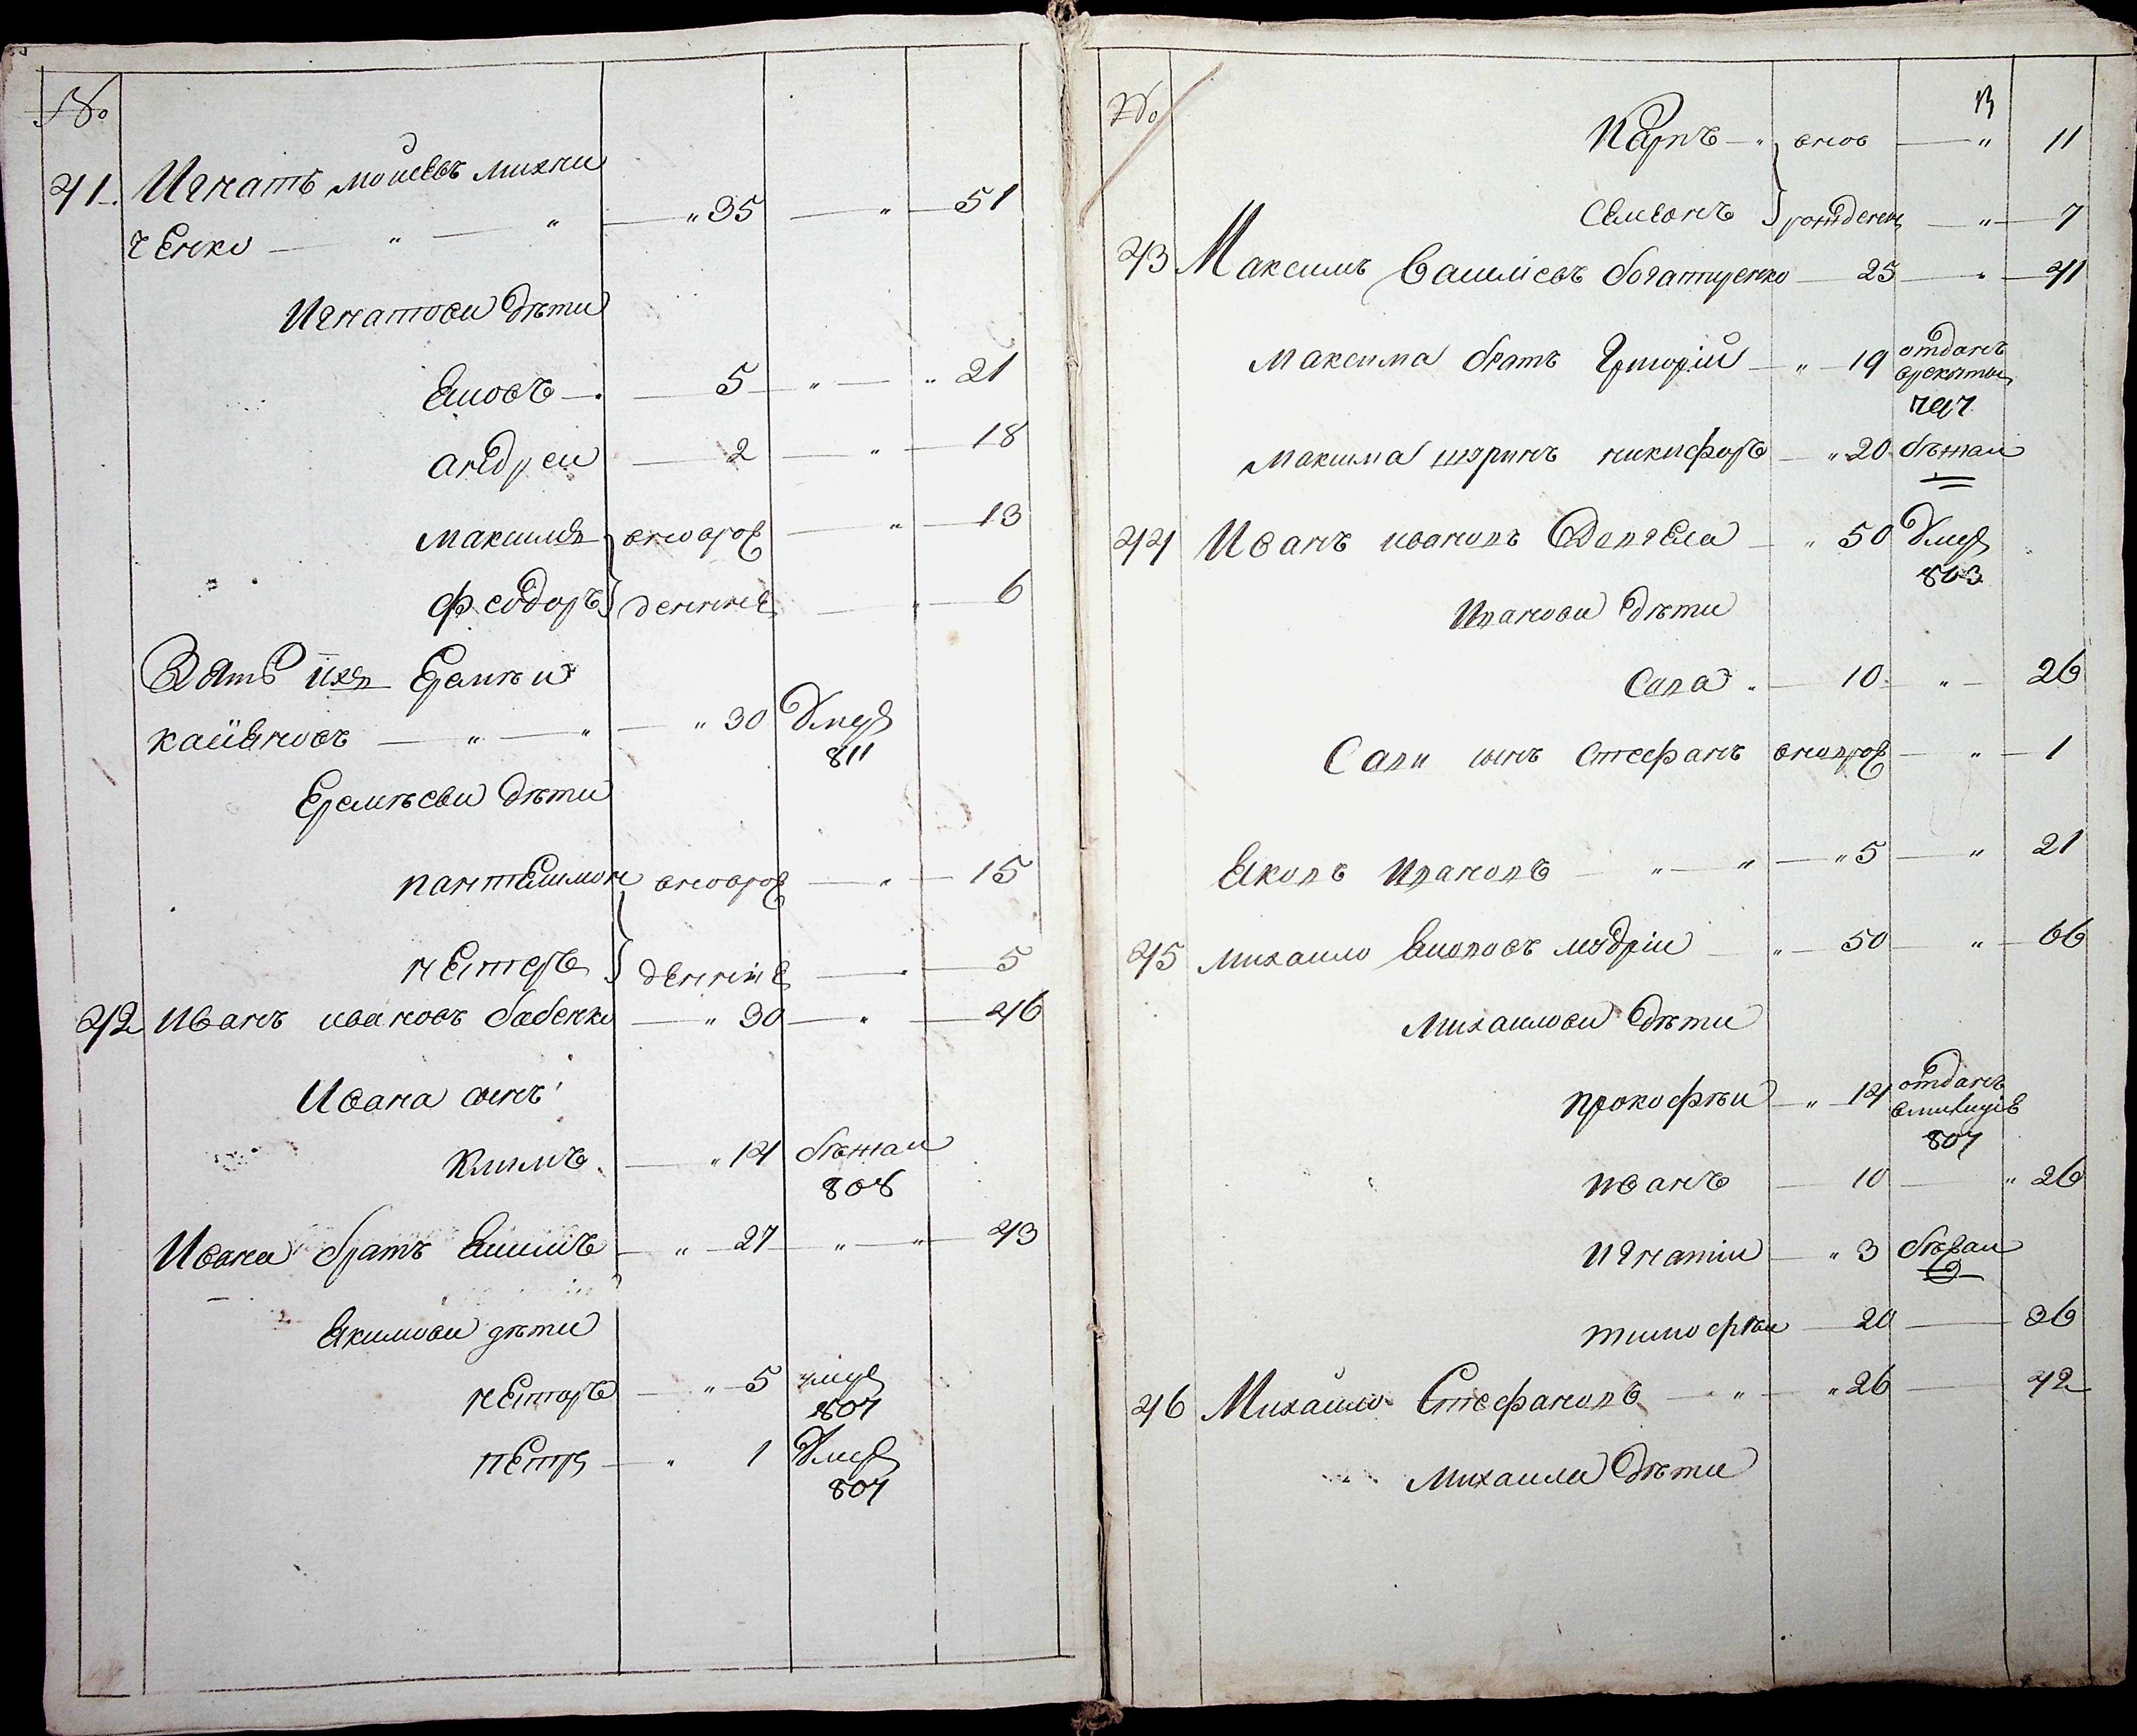 №
41. Игнатъ мойсеевъ михни
ченко — „ — „ — „ 35 — „ — 51
Игнатови дѣти
Яковъ — 5 — „ — „ 21
андреи — 2 — „ — 18
максимъ вновро — „ — 13
феодоръ денние — „ — 6
Зять ихъ Еремѣи
— „ — „ — „ 30 Умер
811
Еремѣеви дѣти
пантелимон вновро — „ — 15
нестеръ денние — „ — 5
42 Иванъ ивановъ бабенко — „ 30 — „ — 46
Ивана сынъ
Климъ — „ 14 бѣжал
808
Ивана братъ Якимъ — „ — 27 — „ — „ — 43
Якимови дѣти
несторъ — „ — 5 умер
807
петръ — „ 1 Умер
807
№ 13
Карпъ — „ внов — „ 11
Семіонъ рожденны — „ — 7
43 Максимъ Василіевъ богатиренко — 25 — „ — 41
максима братъ Григорій — „ — 19 отданъ
врекрты
797
максима шуринъ никифоръ — „ 20 бѣжал
44 Иванъ ивановъ — „ 50 Умер
803
Иванови дѣти
Сава . — 10 — „ — 26
Сави сынъ Стефанъ вновро — „ — 1
Яковъ Ивановъ — „ — „ — „ 5 — „ 21
45 михаило Якововъ мудріи — „ — 50 — „ — 66
Михаилови дѣти
прокофѣи — „ — 14 отданъ
807
иванъ — 10 — „ 26
игнатіи — „ 3 бѣжал
тимофѣи — 20 — 36
46 Михайло Стефановъ — „ — „ 26 — 42
Михаили дѣти